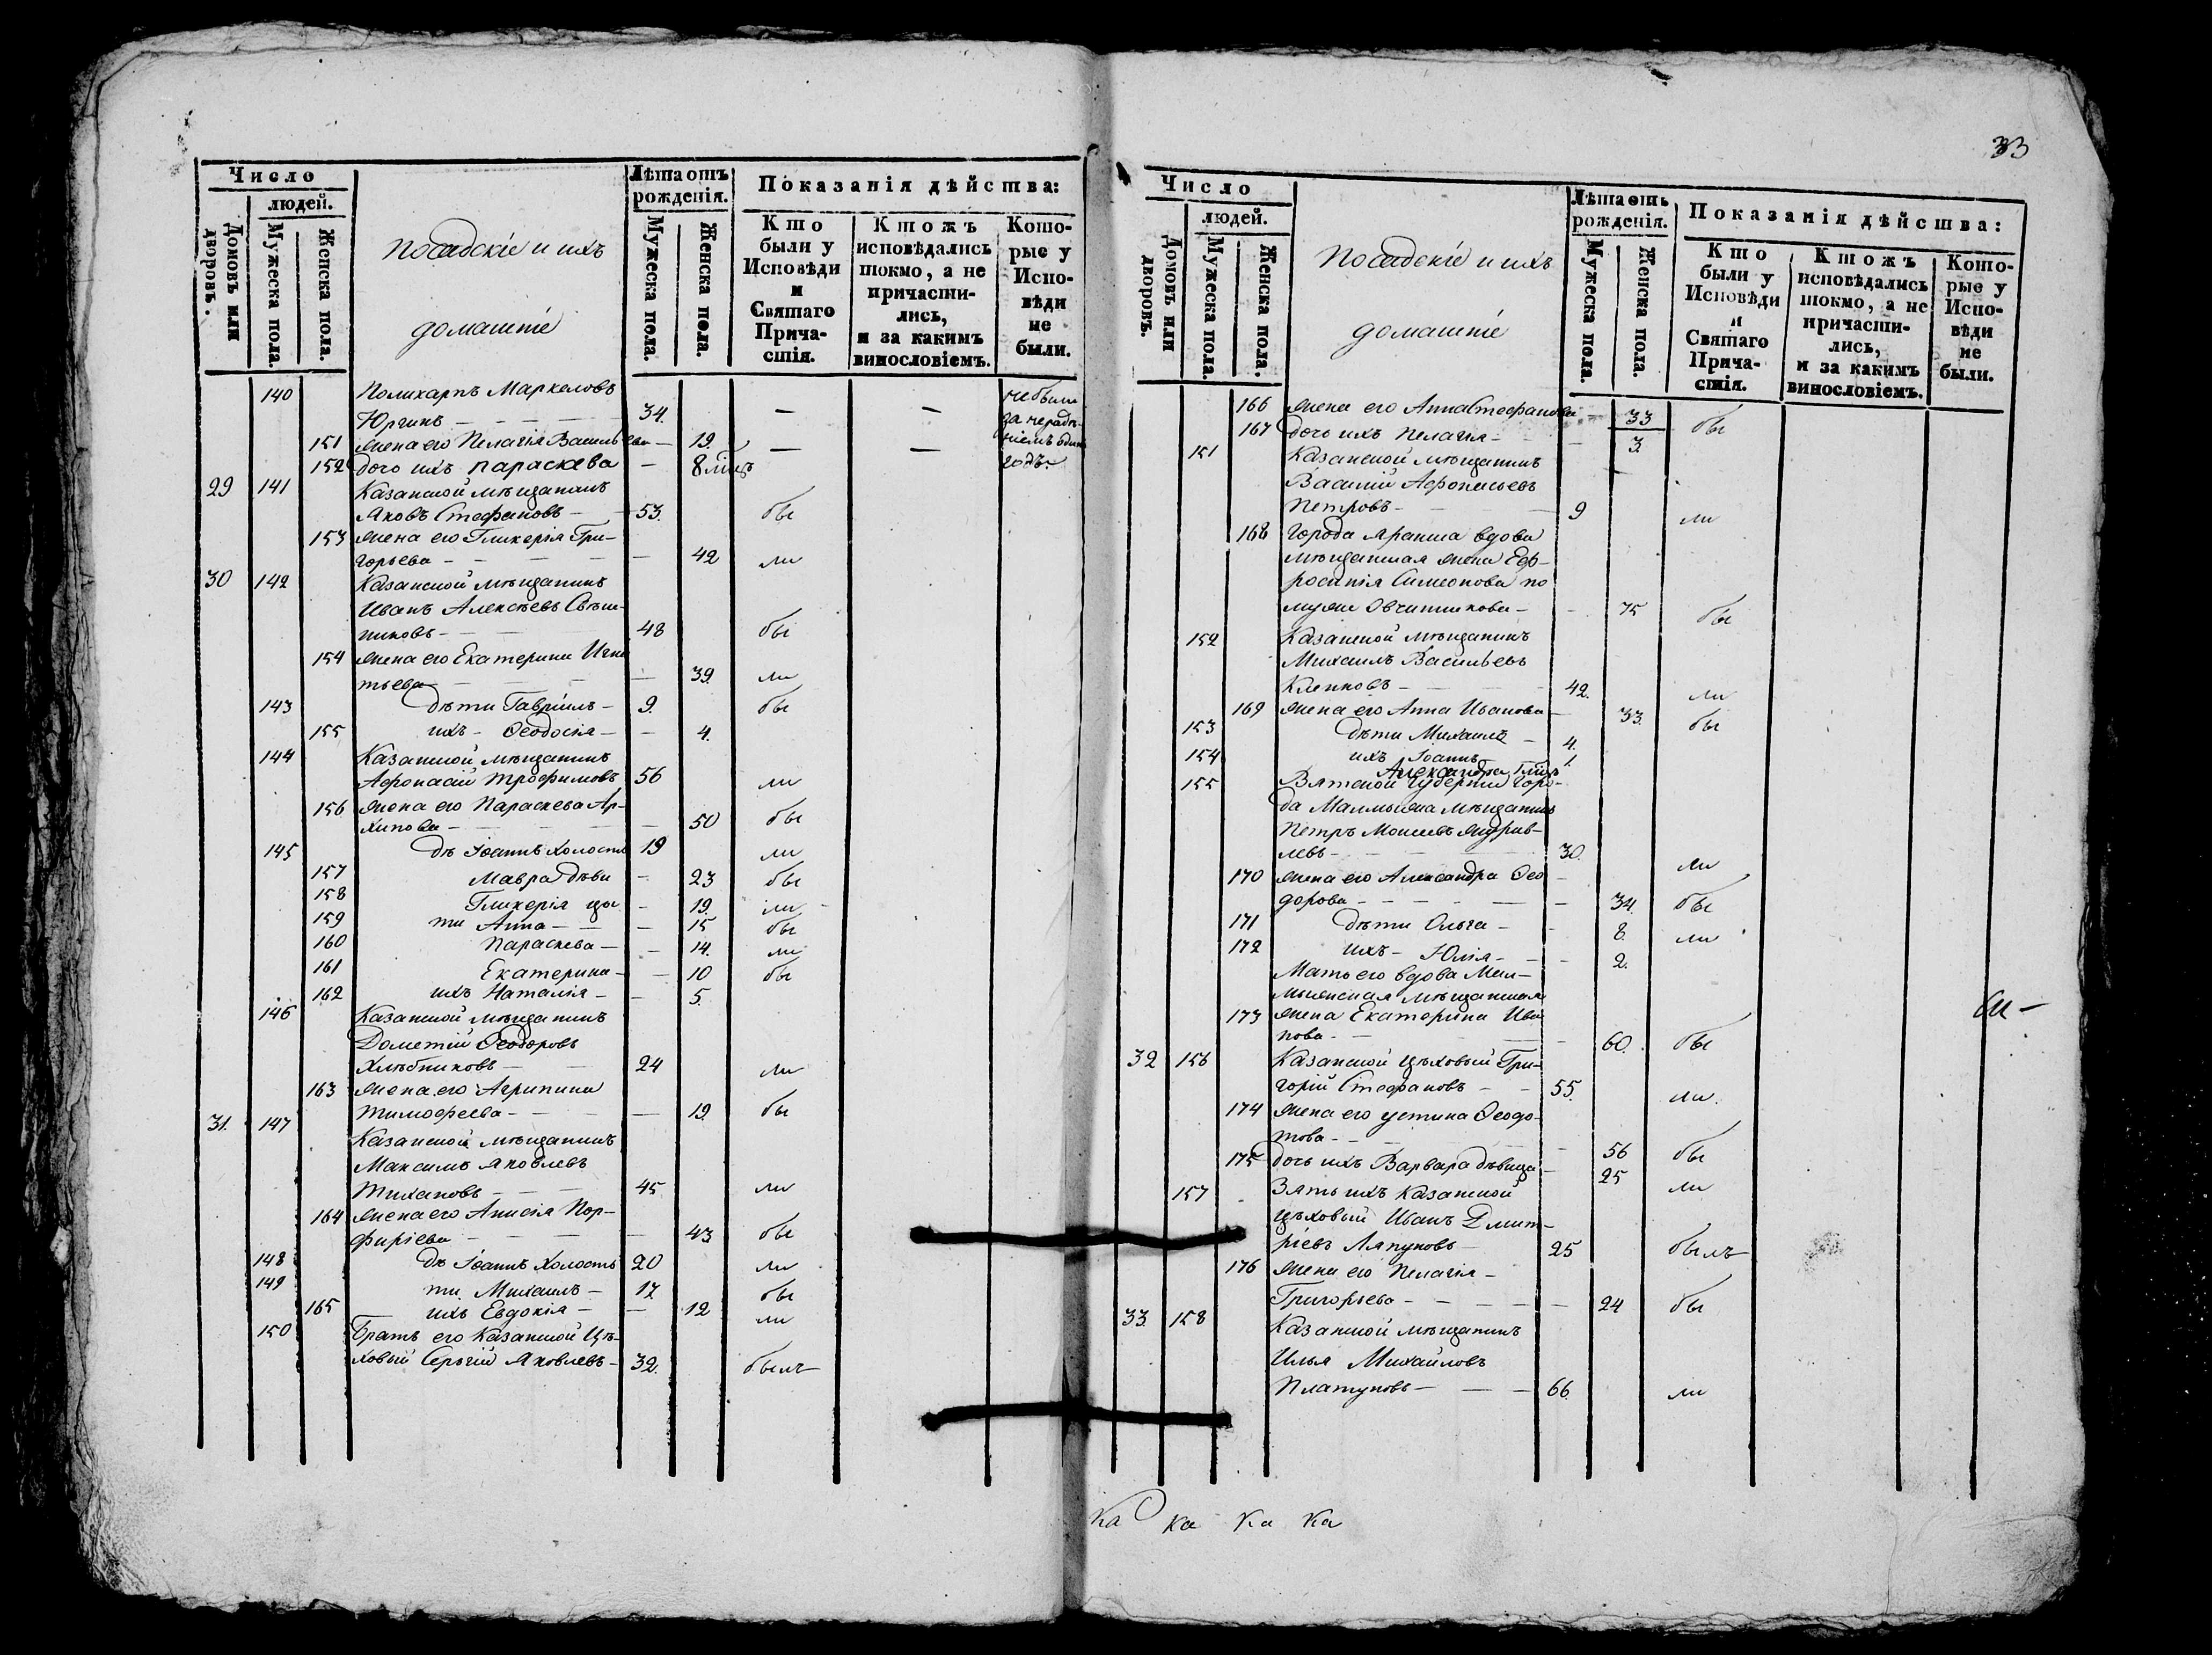 Число
людей.
Домовъ или дворовъ.
Мужеска пола.
Женска пола.
Посадскіе и ихъ
домашніе
Лѣта отъ рожденія.
Мужеска пола.
Женска пола.
Показанія дѣйства:
Кто были у Исповѣди и Святаго Прича-стія.
Ктожъ исповѣдались токмо, а не причасти-лись, и за какимъ винословіемъ.
Кото-рые у Испо-вѣди не были.
140 Поликарпъ Маркеловъ не были
Юргинъ — 34. — — за нерадѣ-
151 жена его Пелагія Васильева — 19. — — ніемъ одинъ
152 дочь ихъ Параскева — 8 мцъ годъ.
29 141 Казанской мѣщанинъ
Яковъ Стефановъ — 53. бы
153 жена его Гликерія Гри-
горьева — — 42 ли
30 142 Казанской мѣщанинъ
Иванъ Алексѣевъ Свѣш-
никовъ — 48 бы
154 жена его Екатерина Игна
тьева — — 39. ли
143 дѣти Гавріилъ — 9. бы
155 ихъ — Ѳеодосія — — 4.
144 Казанской мѣщанинъ
Афонасій Трофимовъ 56 ли
156 жена его Параскева Ар-
хипова — — 50 бы
145 дѣ Іоаннъ холостъ 19 ли
157 Мавра дѣви — 23 бы
158 Гликерія цы — 19. ли
159 ти Анна — — 15 бы
160 Параскева — — 14. ли
161 Екатерина — — 10 бы
162 ихъ Наталія — — 5.
146 Казанской мѣщанинъ
Дометій Ѳеодоровъ
Хлѣбниковъ — 24 ли
163 жена его Агрипина
Тимофеева — — 19. бы
31. 147 Казанской мѣщанинъ
Максимъ Яковлевъ
Тихановъ — 45 ли
164 жена его Анисія Пор-
фиріева — — 43 бы
148 дѣ Іоаннъ холостъ 20 ли
149 ти Михаилъ — 17 бы
165 ихъ Евдокія — — 12 ли
150 Братъ его Казанской Цѣ-
ховый Сергій Яковлевъ — 32. былъ
33
Число
людей.
Домовъ или дворовъ.
Мужеска пола.
Женска пола.
Посадскіе и ихъ
домашніе
Лѣта отъ рожденія.
Мужеска пола.
Женска пола.
Показанія дѣйства:
Кто были у Исповѣди и Святаго Прича-стія.
Ктожъ исповѣдались токмо, а не причасти-лись, и за какимъ винословіемъ.
Кото-рые у Испо-вѣди не были.
166 жена его Анна Стефанова — 33 бы
167 дочь ихъ Пелагія — — 3.
151 Казанской мѣщанинъ
Василій Афонасьевъ
Петровъ — 9 ли
168 Города Яранска вдова
мѣщанская жена Евф-
росинія Симеонова по
мужѣ Овчинникова — — 75 бы
152 Казанской мѣщанинъ
Михаилъ Васильевъ
Клепковъ — 42. ли
169 жена его Анна Иванова — 33. бы
153 дѣти Михаилъ — 4.
154 ихъ Іоаннъ 1.
Александра
155 Вятской Губерніи Горо-
да Малмыжа мѣщанинъ
Петръ Моисеевъ Журав-
левъ — 30. ли
170 жена его Александра Ѳео
дорова — — 34. бы
171 дѣти Ольга — — 8. ли
172 ихъ — Юлія — — 2.
Мать его вдова Мал-
мыжская мѣщанская
173 жена Екатерина Ива
нова — — 60. бы
32 156 Казанской Цѣховый Гри-
горій Стефановъ — 55. ли.
174 жена его Устина Ѳеодо-
това — — 56 бы
175 дочь ихъ Варвара дѣвица — 25 ли
157 Зять ихъ Казанской
цѣховый Иванъ Дмит-
ріевъ Ляпуновъ — 25 былъ
176 жена его Пелагія —
Григорьева — — 24 бы
33. 158 Казанской мѣщанинъ
Илья Михайловъ
Платуновъ — 66. ли
Ка Ка Ка Ка